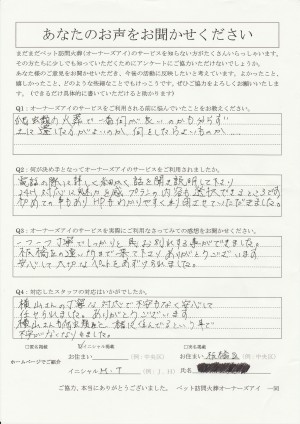 あなたのお声をお聞かせください
まだまだペット訪問火葬(オーナーズアイ)のサービスを知らない方がたくさんいらっしゃいます。
その方たちに少しでも知っていただくためにアンケートにご協力いただけないでしょうか。
あなた様のご意見をお聞かせいただき、今後の活動に反映したいと考えています。よかったこと、
嬉しかったこと、どのような些細なことでもけっこうです。ぜひご協力をよろしくお願いいたします。
(できるだけ具体的に書いていただけると助かります)
Q1:オーナーズアイのサービスをご利用される前に悩んでいたことをお教えください。
火葬で一番何が良いのかも分らず
どこを選んだらよいのか、何をしたらよいものか…
Q2:何が決め手となってオーナーズアイのサービスをご利用されましたか。
電話の際に詳しく細かく話を聞き説明して下さり
対応に魅力を感じプランの内容も選択できるところです
初めての事もあり
Q3:オーナーズアイのサービスを実際にご利用なさってみての感想をお聞かせください。
一つ一つ丁寧でしっかりとお別れする事ができました。
板橋区の遠い所まで来て下さりありがとうございます
安心して大切なペットをあずけられました。
Q4:対応したスタッフの対応はいかがでしたか。
横山さんの丁寧な対応で不安もなく安心して
任せられました。ありがとうございます
横山さんも
不安がなくなりました
□匿名掲載 ☑イニシャル掲載 □実名掲載
ホームページでご紹介 お住まい (例:中央区) お住まい 板橋区 (例:中央区)
イニシャル M・T (例:J.H) 氏名
ご協力、本当にありがとうございました。 ペット訪問火葬オーナーズアイ